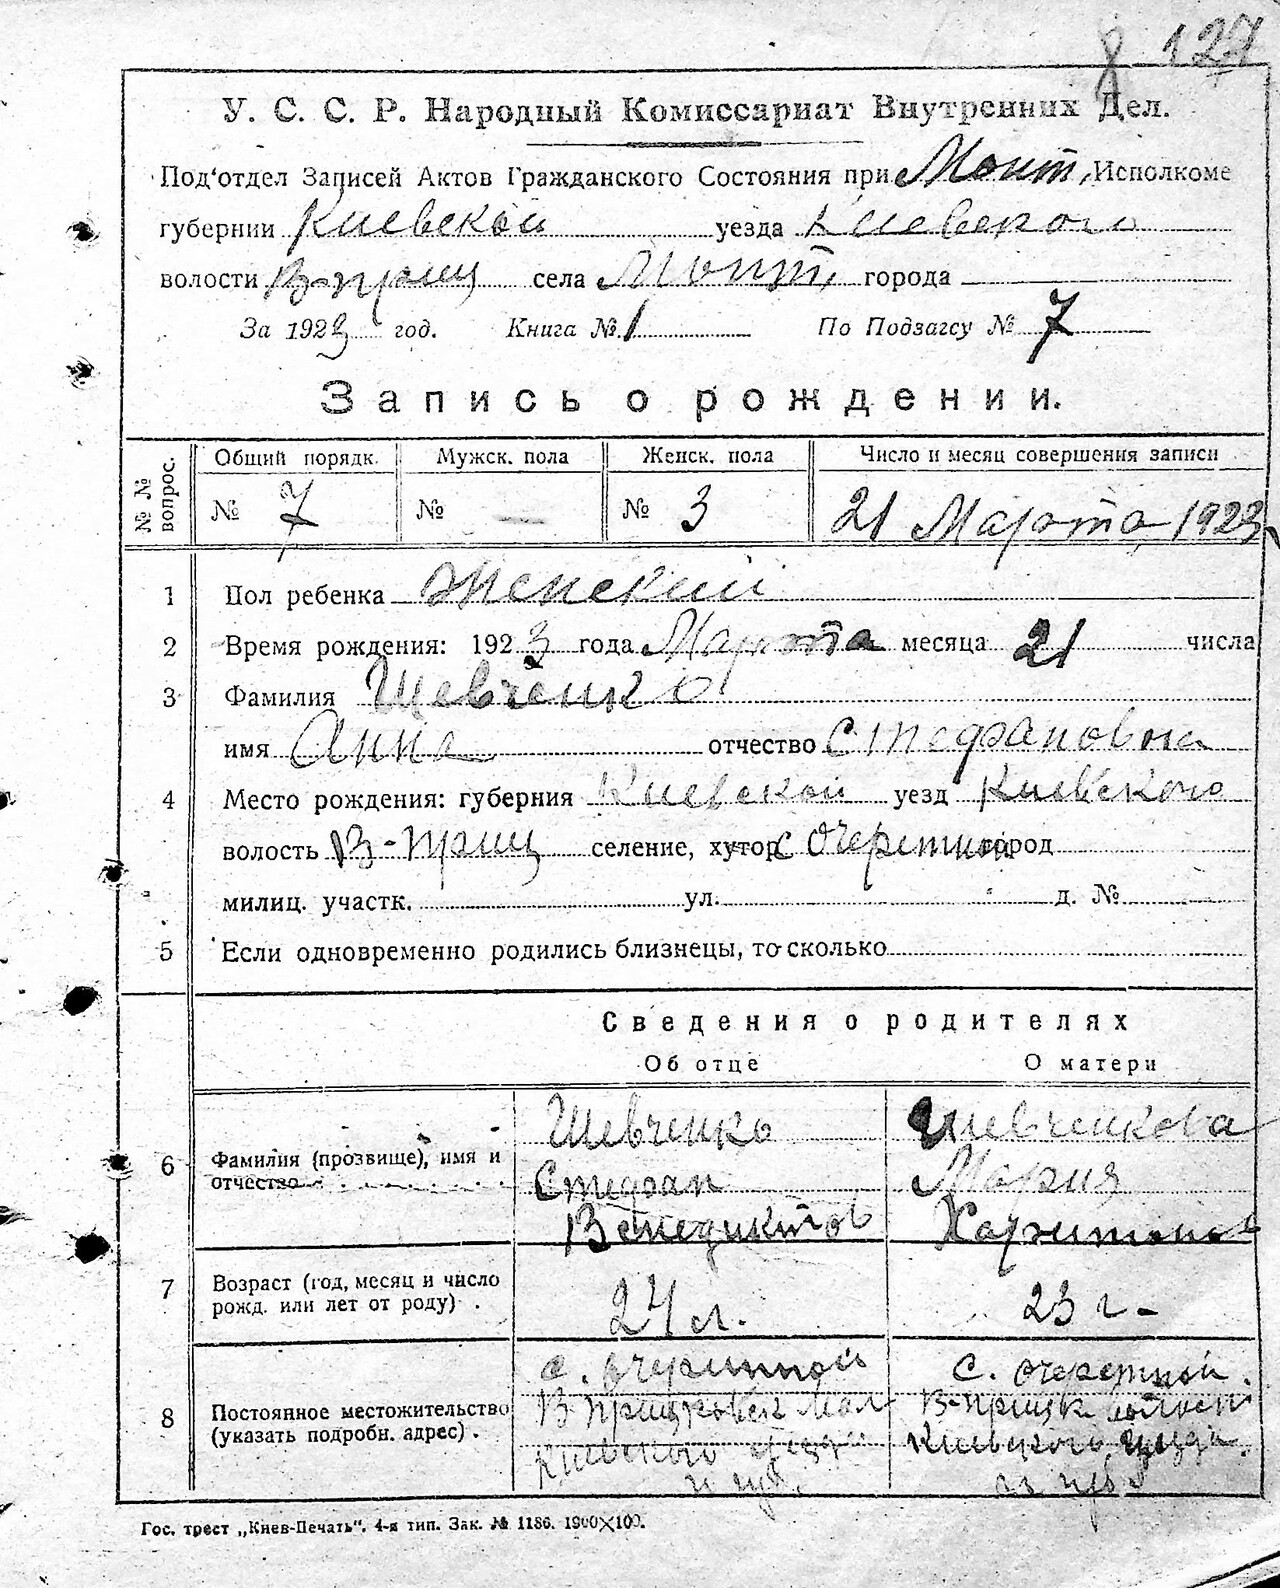 127
У. С. С. Р. Народный Комиссариат Внутренних Дел.
Под'отдел Записей Актов Гражданского Состояния при Монт, Исполкоме
губернии Киевской уезда Киевского
волости В-приц села Монт, города
За 1923 год. Книга № 1 По Подзагсу № 7
Запись о рождении.
№ № вопрос. Общий порядк. Мужск. пола Женск. пола Число и месяц совершения записи
№ 7 № — № 3 21 Марта 1923
1 Пол ребенка Женский
2 Время рождения: 1923 года Марта месяца 21 числа
3 Фамилия Шевченко
имя Анна отчество Стефановна
4 Место рождения: губерния Киевской уезд Киевского
волость В-приц селение, хутор с Очеретной город
милиц. участк. ул. д. №
5 Если одновременно родились близнецы, то сколько
Сведения о родителях
Об отце О матери
Шевченко Шевченкова
6 Фамилия (прозвище), имя и
отчество Стефан Мария
Венедиктов Харитонов
7 Возраст (год, месяц и число
рожд. или лет от роду) . 24 л. 23 г-
с. Очеретной с. Очеретной.
8 Постоянное местожительство В-Прицковск В-прицк волости
(указать подробн. адрес) . Киевского уезда Киевского уезда.
и губ. и губ
Гос. трест „Киев-Печать“. 4-я тип. Зак. № 1186. 1900×100.